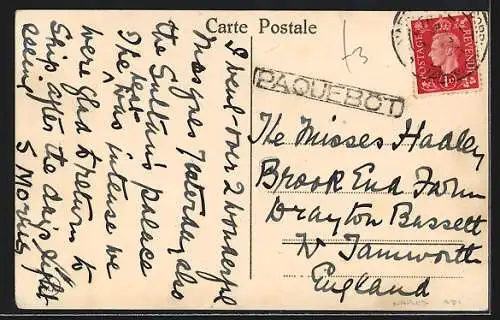 Carte Postale
I went over 2 wonderful
Mosques Yesterday also
the Sultan's palace
The heat was intense we
were glad to return to
Ship after the days sight
seeing
S Morris
PAQUEBOT
POSTAGE REVENUE
The Misses Hadley
Brook End Farm
Drayton Bassett
Nr Tamworth
England
NAPLES